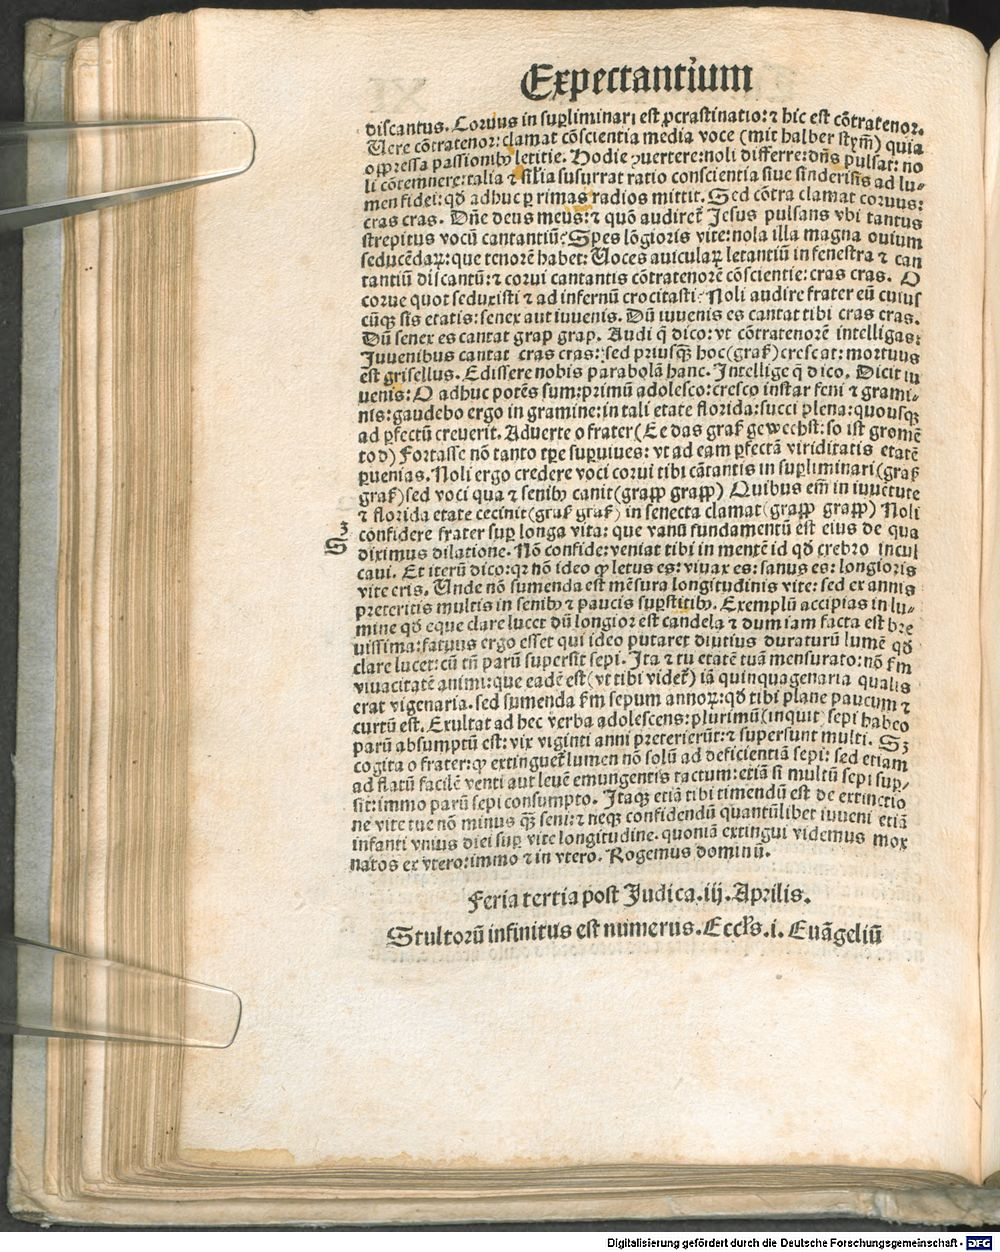 Expectantium
discantus. Coruus in sup̱liminari est ꝓcrastinatio: ⁊ hic est cõtratenor.
Uere cõtratenor: clamat cõscientia media voce (mit halber stym̃) quia
opp̱ressa passionibꝰ letitie. Hodie ꝯuertere: noli differre: dñs pulsat: no
li cõtemnere: talia ⁊ sil̃ia susurrat ratio conscientia siue sinderisis ad lu⸗
men fidei: qđ adhuc ꝑ rimas radios mittit. Sed cõtra clamat coruus:
cras cras. Dñe deus meus: ⁊ quõ audiret̃ Jesus pulsans vbi tantus
strepitus vocũ cantantiũ? Spes lõgioris vite: nola illa magna ouium
seducẽdaꝝ: que tenorẽ habet: Uoces auiculaꝝ letantiũ in fenestra ⁊ can
tantiũ discantũ: ⁊ corui cantantis cõtratenorẽ cõscientie: cras cras. O
corue quot seduxisti ⁊ ad infernũ crocitasti. Noli audire frater eũ cuius
cũqꝫ sis etatis: senex aut iuuenis. Dũ iuuenis es cantat tibi cras cras.
Dũ senex es cantat grap grap. Audi q̃ dico: vt cõtratenorẽ intelligas:
Juuenibus cantat cras cras: sed priusq̃ꝫ hoc (graß) crescat: mortuus
est grisellus. Edissere nobis parabolã hanc. Intellige q̃ dico. Dicit iu
uenis: O adhuc potẽs sum: primũ adolesco: cresco instar feni ⁊ grami⸗
nis: gaudebo ergo in gramine: in tali etate florida: succi plena: quousqꝫ
ad ꝑfectũ creuerit. Aduerte o frater (Ee das graß gewechst: so ist gromẽ
tod) Fortasse nõ tanto tp̃e suꝑuiues: vt ad eam ꝑfectã viriditatis etatẽ
ꝑuenias. Noli ergo credere voci corui tibi cãtantis in suꝑliminari (graß
graß) sed voci qua ⁊ senibꝰ canit (grapp grapp) Quibus em̃ in iuuẽtute
⁊ florida etate cecinit (graß graß) in senecta clamat (grapp grapp) Noli
confidere frater suꝑ longa vita: que vanũ fundamentũ est eius de qua
3
S
diximus dilatione. Nõ confide: veniat tibi in mentẽ id qđ crebro incul
caui. Et iterũ dico: qꝛ nõ ideo ꝙ letus es: viuax es: sanus es: longioris
vite eris. Unde nõ sumenda est mẽsura longitudinis vite: sed ex annis
preteritis multis in senibꝰ ⁊ paucis suꝑstitibꝰ. Exemplũ accipias in lu⸗
mine qđ eque clare lucet dũ longior est candela ⁊ dum iam facta est bre
uissima: fatuus ergo esset qui ideo putaret diutius duraturũ lumẽ qđ
clare lucet: cũ tñ parũ supersit sepi. Ita ⁊ tu etatẽ tuã mensurato: nõ ẜm
viuacitatẽ animi: que eadẽ est (vt tibi videt̃) iã quinquagenaria qualis
erat vigenaria. sed sumenda ẜm sepum annoꝝ: qđ tibi plane paucum ⁊
curtũ est. Exultat ad hec verba adolescens: plurimũ (inquit) sepi habeo
parũ absumptũ est: vix viginti anni preterierũt: ⁊ supersunt multi. Sꝫ
cogita o frater: ꝙ extinguet̃ lumen nõ solũ ad deficientiã sepi: sed etiam
ad flatũ facilẽ venti aut leuẽ emungentis tactum: etiã si multũ sepi suꝑ⸗
sit: immo parũ sepi consumpto. Itaqꝫ etiã tibi timendũ est de extinctio
ne vite tue nõ minus q̃ꝫ seni: ⁊ neqꝫ confidendũ quantũlibet iuueni etiã
infanti vnius diei suꝑ vite longitudine. quoniã extingui videmus mox
natos ex vtero: immo ⁊ in vtero. Rogemus dominũ.
Feria tertia post Judica. iij. Aprilis.
Stultorũ infinitus est numerus. Eccl̃s. i. Euãgeliũ
Digitalisierung gefördert durch die Deutsche Forschungsgemeinschaft - DFG